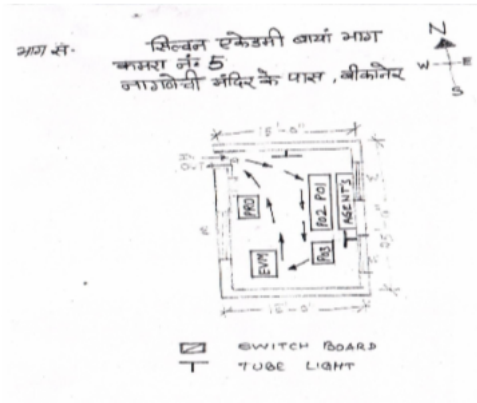 भाग सं.
सिल्वन एकेडमी बायां भाग
कमरा नं. 5
नागणेची मंदिर के पास, बीकानेर
N
W E
S
15'-0"
OUT
PRO
PO2 PO1
AGENTS
PO3
EVM
15'-0"
SWITCH BOARD
TUBE LIGHT